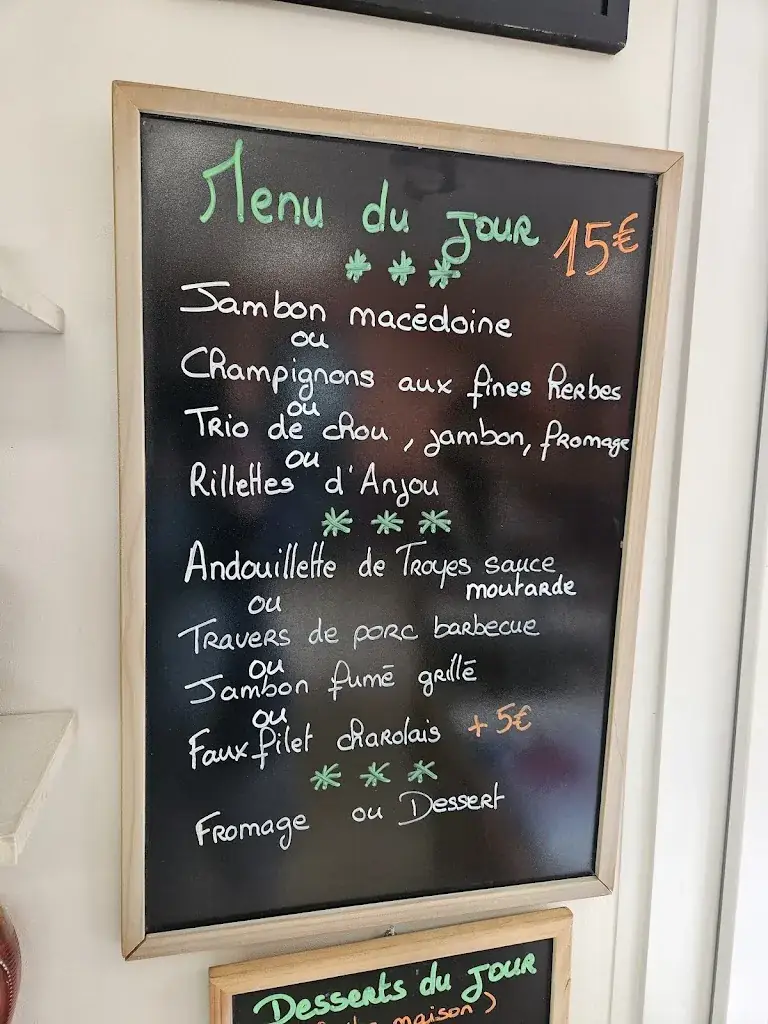 Menu du jour 15€
Jambon macédoine
ou
Champignons aux fines herbes
ou
Trio de chou, jambon, fromage
ou
Rillettes d'Anjou
Andouillette de Troyes sauce
moutarde
ou
Travers de porc barbecue
ou
Jambon fumé grillé
ou
Faux filet charolais +5€
Fromage ou Dessert
Desserts du jour
maison)